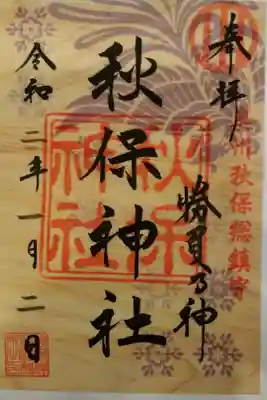 奉拝
奥州秋保総鎮守
勝負の神
秋保神社
秋保神社
令和二年一月二日